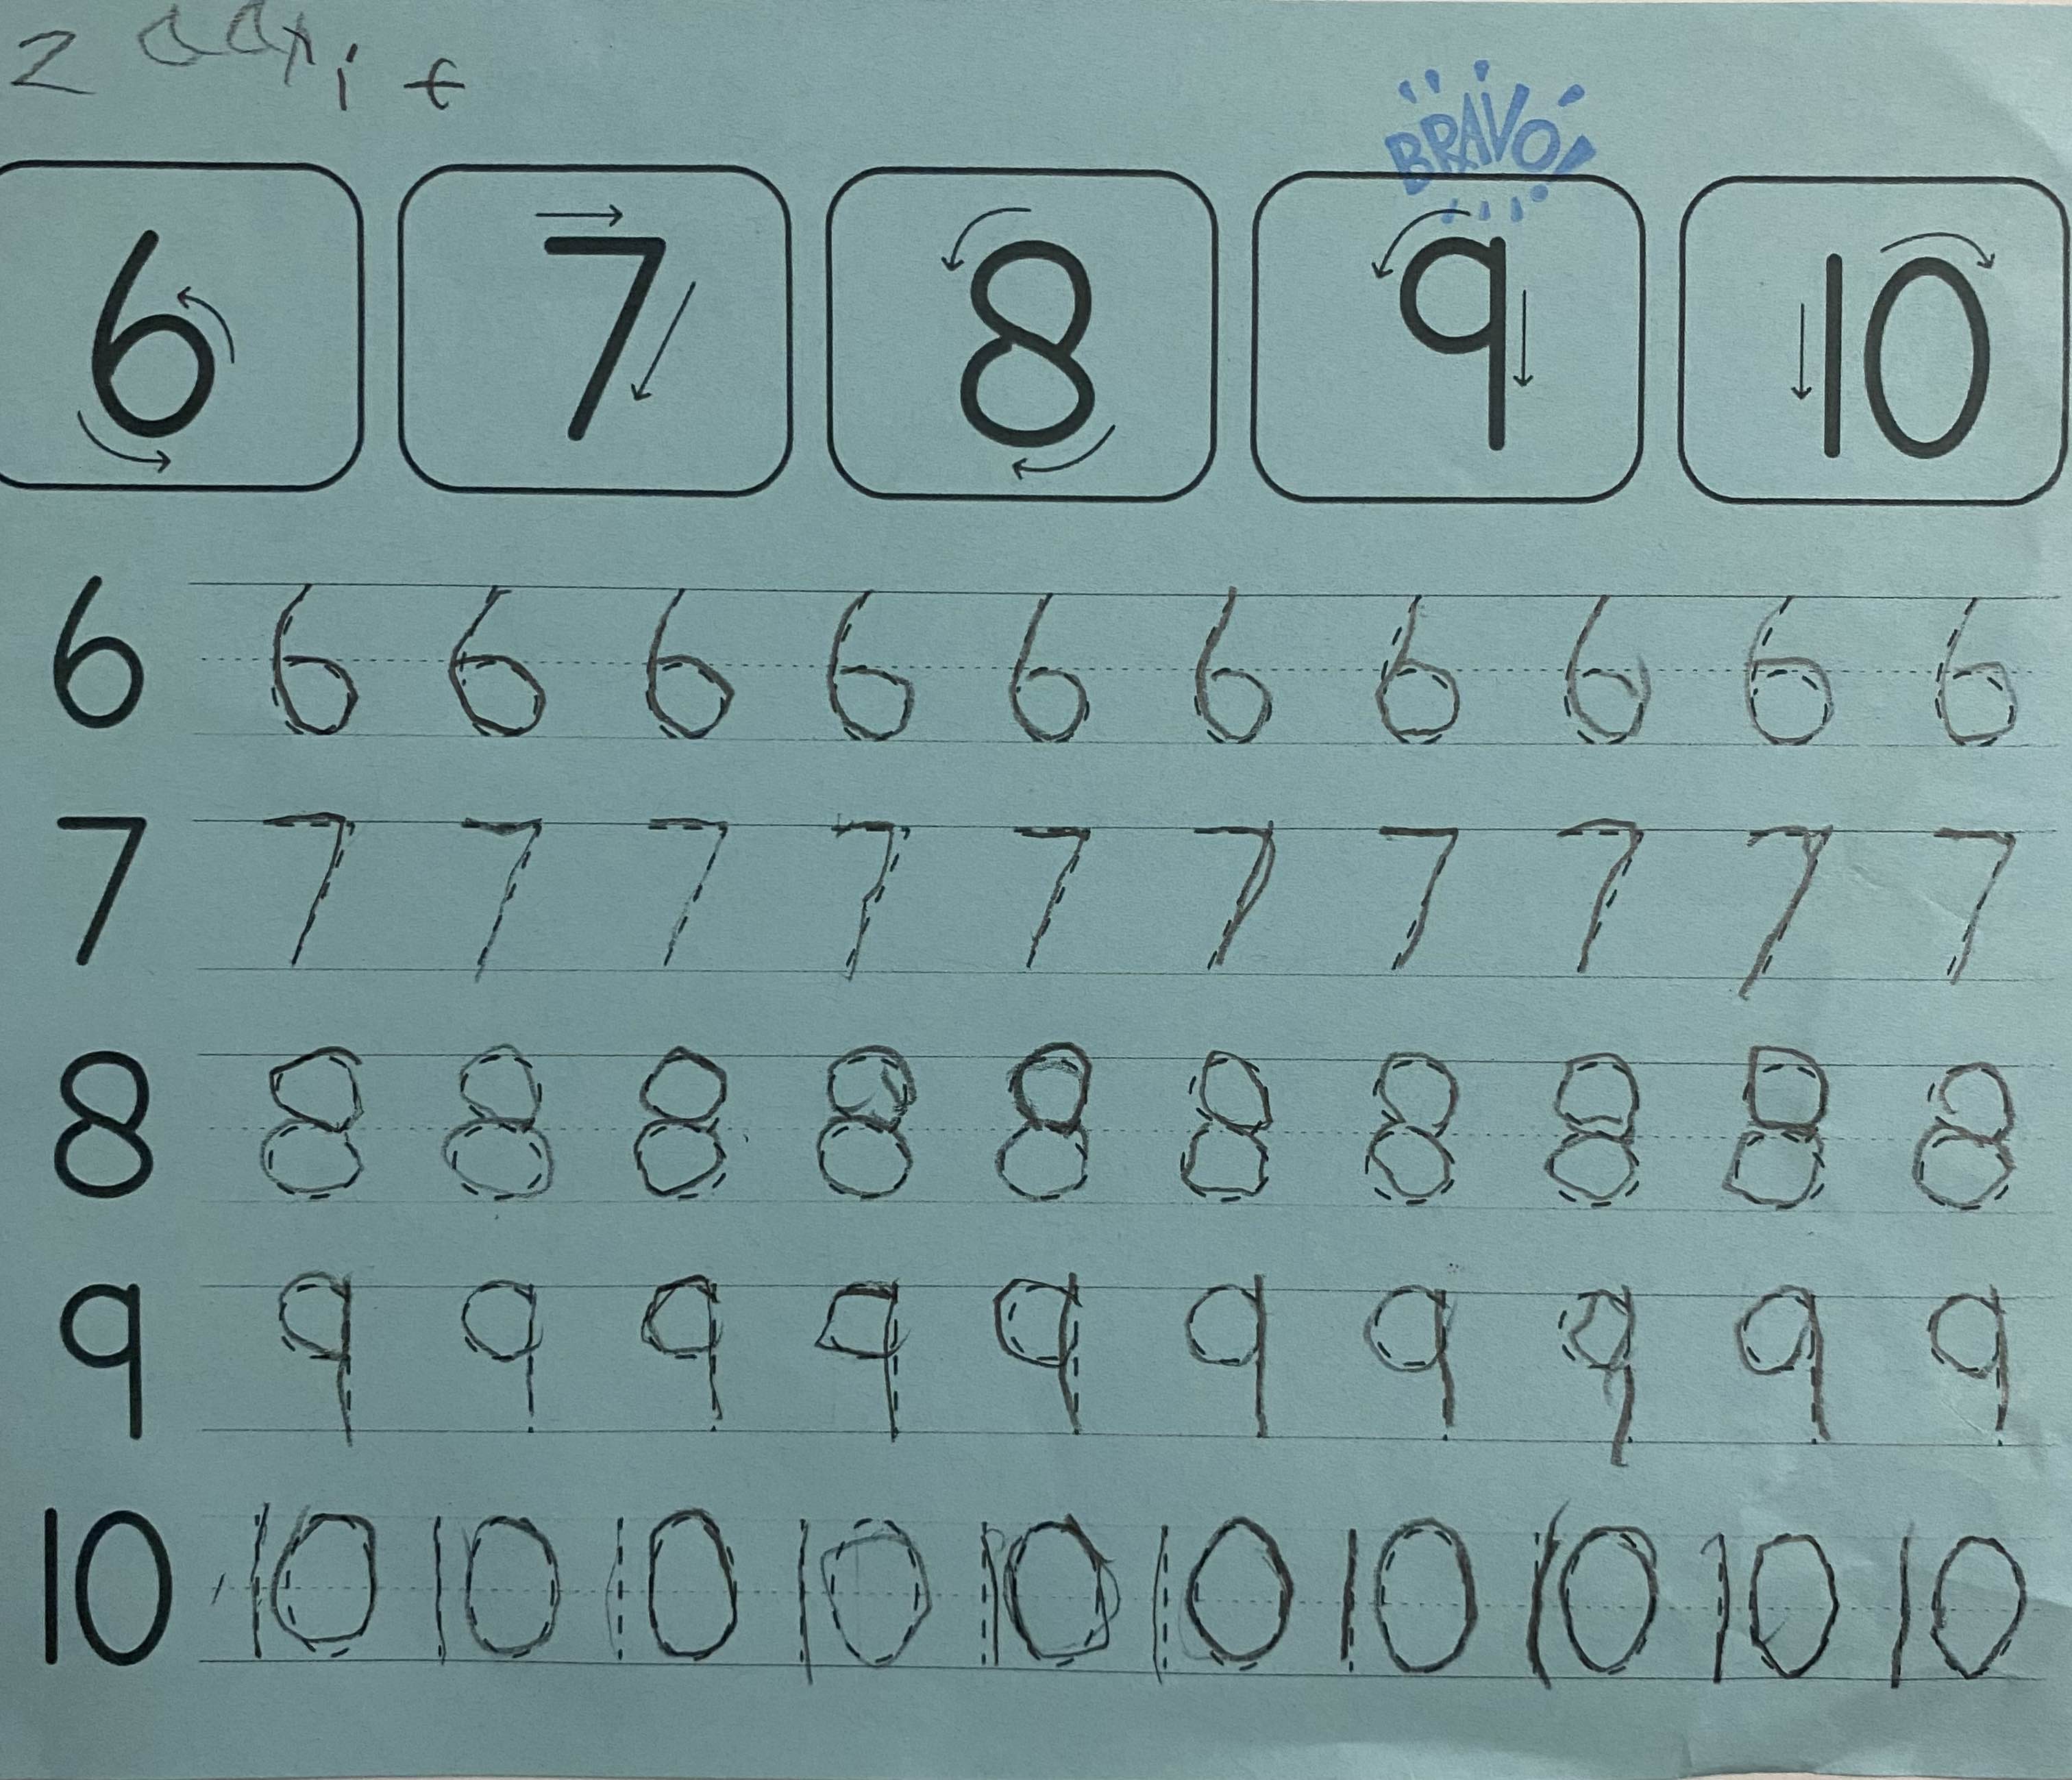 BRAVO!
6 7 8 9 10
6 6 6 6 6 6 6 6 6 6 6
7 7 7 7 7 7 7 7 7 7 7
8 8 8 8 8 8 8 8 8 8 8
9 9 9 9 9 9 9 9 9 9 9
10 10 10 10 10 10 10 10 10 10 10